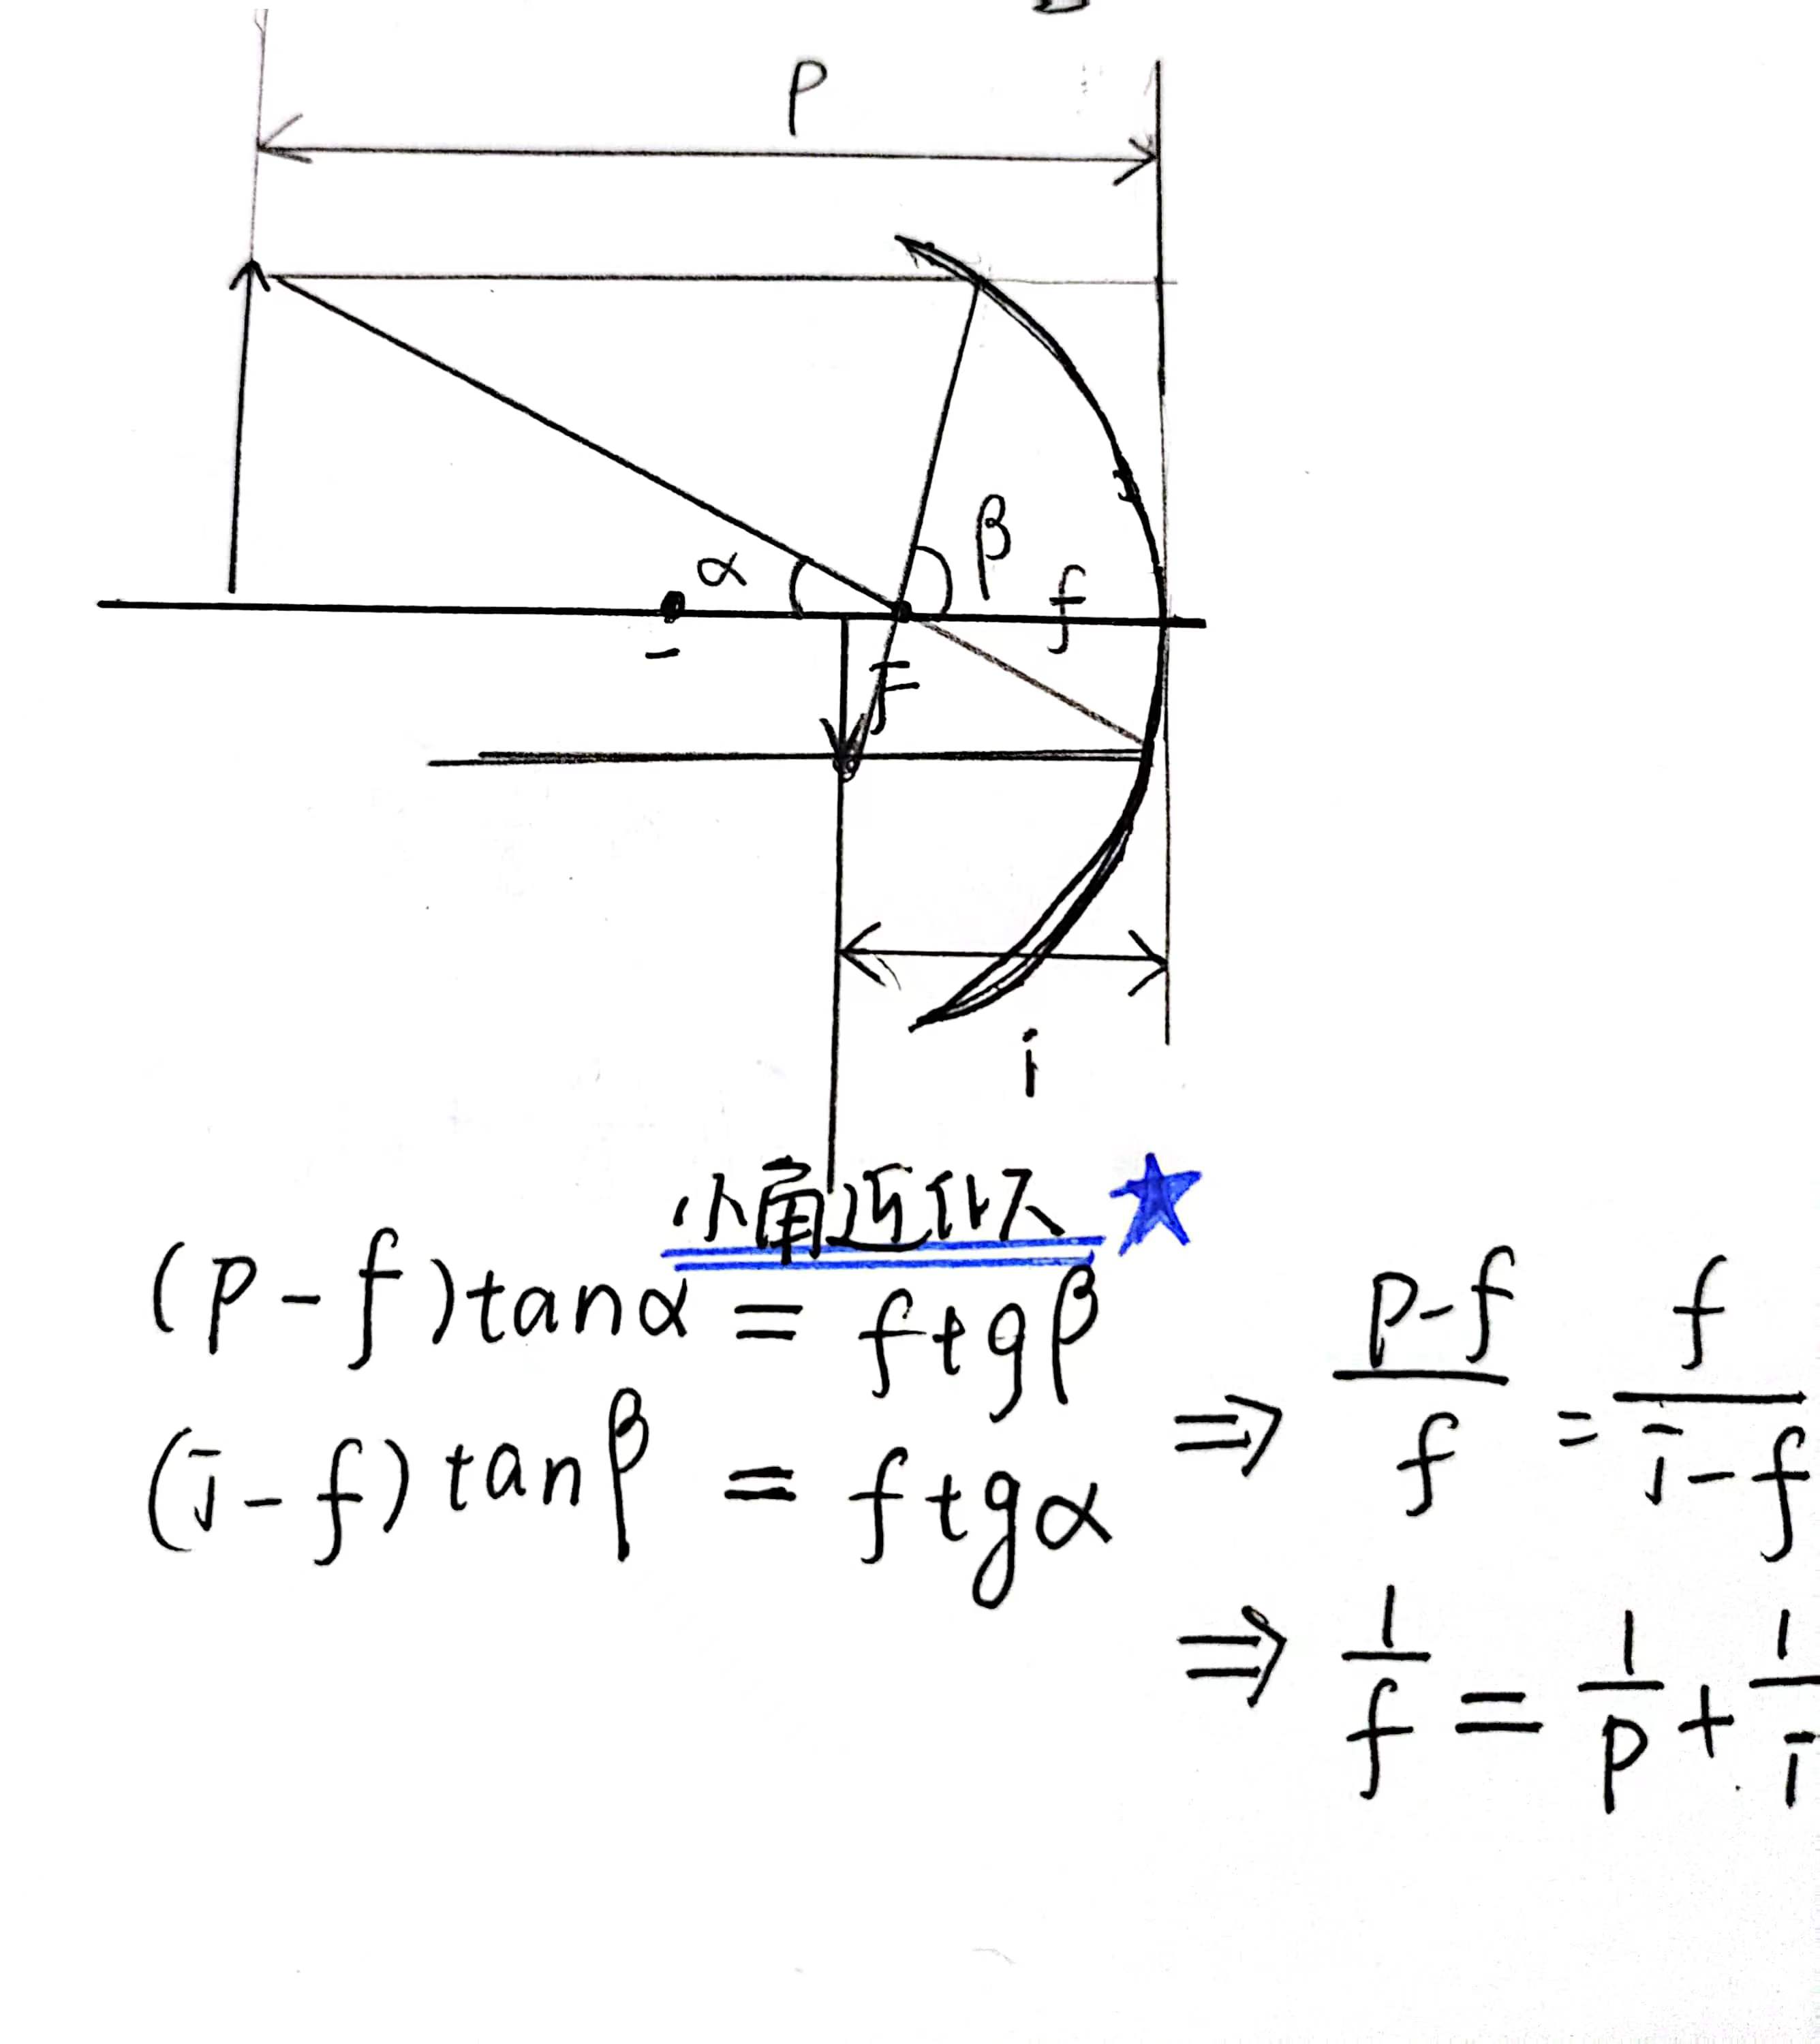 P
α
β
f
F
i
小角近似 ★
(P-f)tanα = ftgβ
(i-f)tanβ = ftgα
⇒ p-f/f = f/i-f
⇒ 1/f = 1/p + 1/i